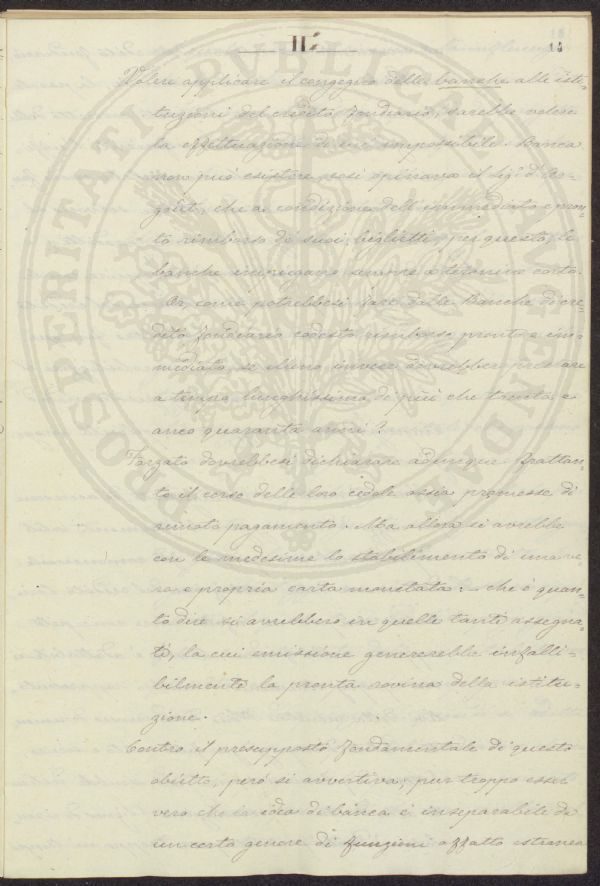 II.
14
Volere applicare il congegno delle banche alle isti-
tuzioni del credito fondiario, sarebbe volere
la effettuazione di un impossibile. Banca
non può esistere, così opinava il Sig.r d'Ar-
gout, che a condizione dell'immediato e pron-
to rimborso di suoi biglietti, per questo, le
banche impiegano sempre a termine corto.
Or, come potrebbesi fare dalle Banche di cre-
dito fondiario codesto rimborso pronto e im-
mediato, se elleno invece dovrebber prestare
a tempo lunghissimo, di più che trenta e
anco quaranta anni?
Forzato dovrebbesi dichiarare adunque frattan-
to il corso delle loro cedole ossia promesse di
remoto pagamento. Ma allora si avrebbe
con le medesime lo stabilimento di una ve-
ra e propria carta monetata: – che è quan-
to dire si avrebbero in quelle tanti assegna-
ti, la cui emissione genererebbe infalli-
bilmente la pronta rovina della istitu-
zione.
Contro il presupposto fondamentale di questo
obietto, però si avvertiva, pur troppo esser
vero che la idea di banca è inseparabile da
un certo genere di funzioni affatto estranea
PROSPERITATI PUBLICAE AUGENDAE